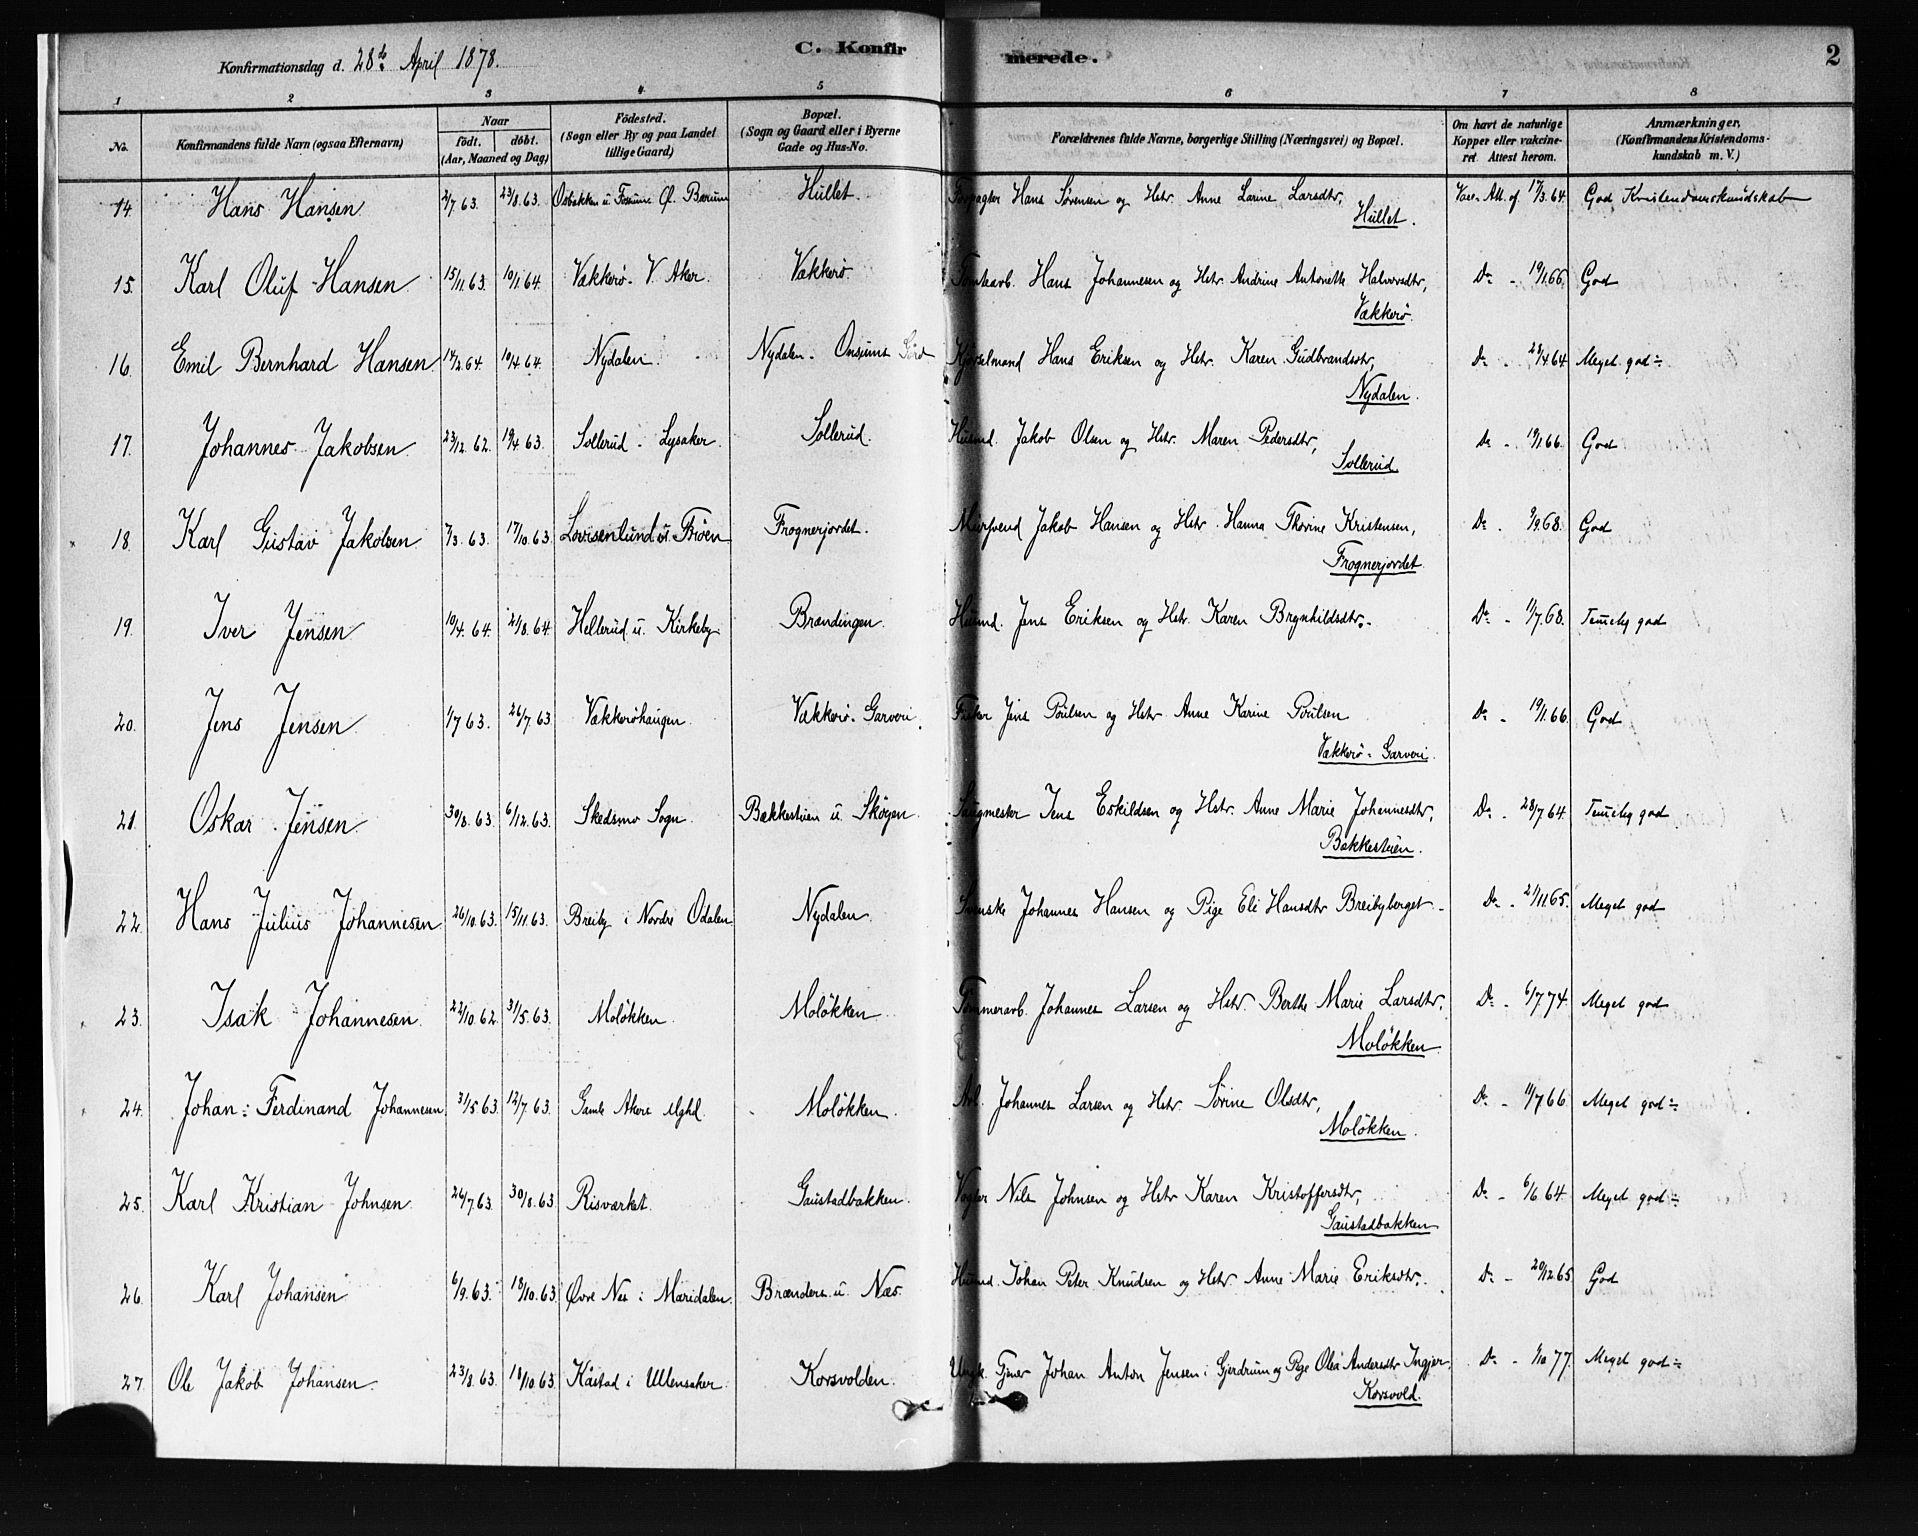 C. Konfirmerede.
2
Konfirmationsdag d. 28de April 1878.
1 2 3 4 5 6 7 8
No. Konfirmandens fulde Navn (ogsaa Efternavn) Naar født. døbt. (Aar, Maaned og Dag) Födested. (Sogn eller By og paa Landet tillige Gaard) Bopæl. (Sogn og Gaard eller i Byerne Gade og Hus-No. Forældrenes fulde Navne, borgerlige Stilling (Næringsvei) og Bopæl. Om havt de naturlige Kopper eller vakcineret. Attest herom. Anmærkninger, (Konfirmandens Kristendomskundskab m. V.)
14. Hans Hansen 2/7 63. 23/8. 63. Osbakken u. Fossum Ø. Bærum Hullet Forpagter Hans Sørensen og Hstr. Anne Larine Larsdtr, Vacc. Att. af 17/3. 64. God Kristendomskundskab
Hullet.
15. Karl Oluf Hansen 15/11. 63. 10/1. 64. Vækkerø. V. Aker. Vækkerø Tomtearb. Hans Johannesen og Hstr. Andrine Antonette Halvorsdtr, Do - 19/1. 66. God
Vækkerø.
16. Emil Bernhard Hansen 14/2. 64. 10/4 64. Nydalen. Nydalen. Onsums Kjørselmand Hans Eriksen og Hstr. Karen Gudbrandsdtr, Do - 28/4 64. Meget god ÷
Nydalen.
17. Johannes Jakobsen 23/12. 62. 19/4 63. Sollerud - Lysaker. Sollerud. Husmd. Jakob Olsen og Hstr. Maren Pedersdtr, Do - 19/1. 66. God
Sollerud
18. Karl Gustav Jakobsen 7/3. 63. 17/10. 63. Lovisenlund u. Frøen Frognerjordet. Murfvend Jakob Hansen og Hstr. Hanna Thorine Kristensen, Do. 9/9. 68. God
Frognerjordet
19. Iver Jensen 10/4. 64. 21/8. 64. Hellerud u. Kirkeby Brændingen. Husmd. Jens Eriksen og Hstr. Karen Brynhildsdtr. - Do - 11/7. 68. Temelig god
20. Jens Jensen 1/7 63. 26/7. 63. Vækkerøhaugen. Vækkerø. Garveri. Fisker Jens Poulsen og Hstr. Anne Karine Poulsen Do - 19/1. 66. God
Vækkerø - Garveri.
21. Oskar Jensen 30/8. 63. 6/12. 63. Skedsmo Sogn. Bakkestuen u. Skøyen. Saugmester Jens Eskildsen og Hstr. Anne Marie Johannesdtr, Do. - 28/7. 64. Temelig god
Bakkestuen.
22. Hans Julius Johannesen 26/10. 63. 15/11. 63. Breiby i Nordre Odalen Nydalen. Svenske Johannes Hansen og Pige Eli Hansdtr Breibyberget - Do - 21/11. 65. Meget god
23. Isak Johannesen. 22/10. 62. 31/5. 63. Moløkken. Moløkken Tømmerarb. Johannes Larsen og Hstr. Berthe Marie Larsdtr. Do - 6/7 74. Meget god
Moløkken
24. Johan Ferdinand Johannesen 31/5. 63. 12/7. 63. Gamle Akers Mghd. Moløkken. Arb. Johannes Larsen og Hstr. Sørine Olsdtr, Do - 11/7 66. Meget god ÷
Moløkken.
25. Karl Kristian Johnsen 26/7. 63. 30/8. 63 Risværket. Gaustadbakken. Vogter Nils Johnsen og Hstr. Karen Kristoffersdtr, Do - 6/6. 64. Meget god ÷
Gaustadbakken
26. Karl Johansen 6/9. 63. 18/10. 63. Øvre Nes i Maridalen. Brænderu u. Næs. Husmd. Johan Peter Knudsen og Hstr. Anne Marie Eriksdtr. Do - 20/12. 65. God
27. Ole Jakob Johansen. 23/8. 63. 18/10. 63. Kåstad i Ullensaker. Korsvolden. Ungk. Tjener Johan Anton Jensen i Gjerdrum og Pige Olea Andersdtr Ingjer Do - 1/10 77. Meget god ÷
Korsvold.